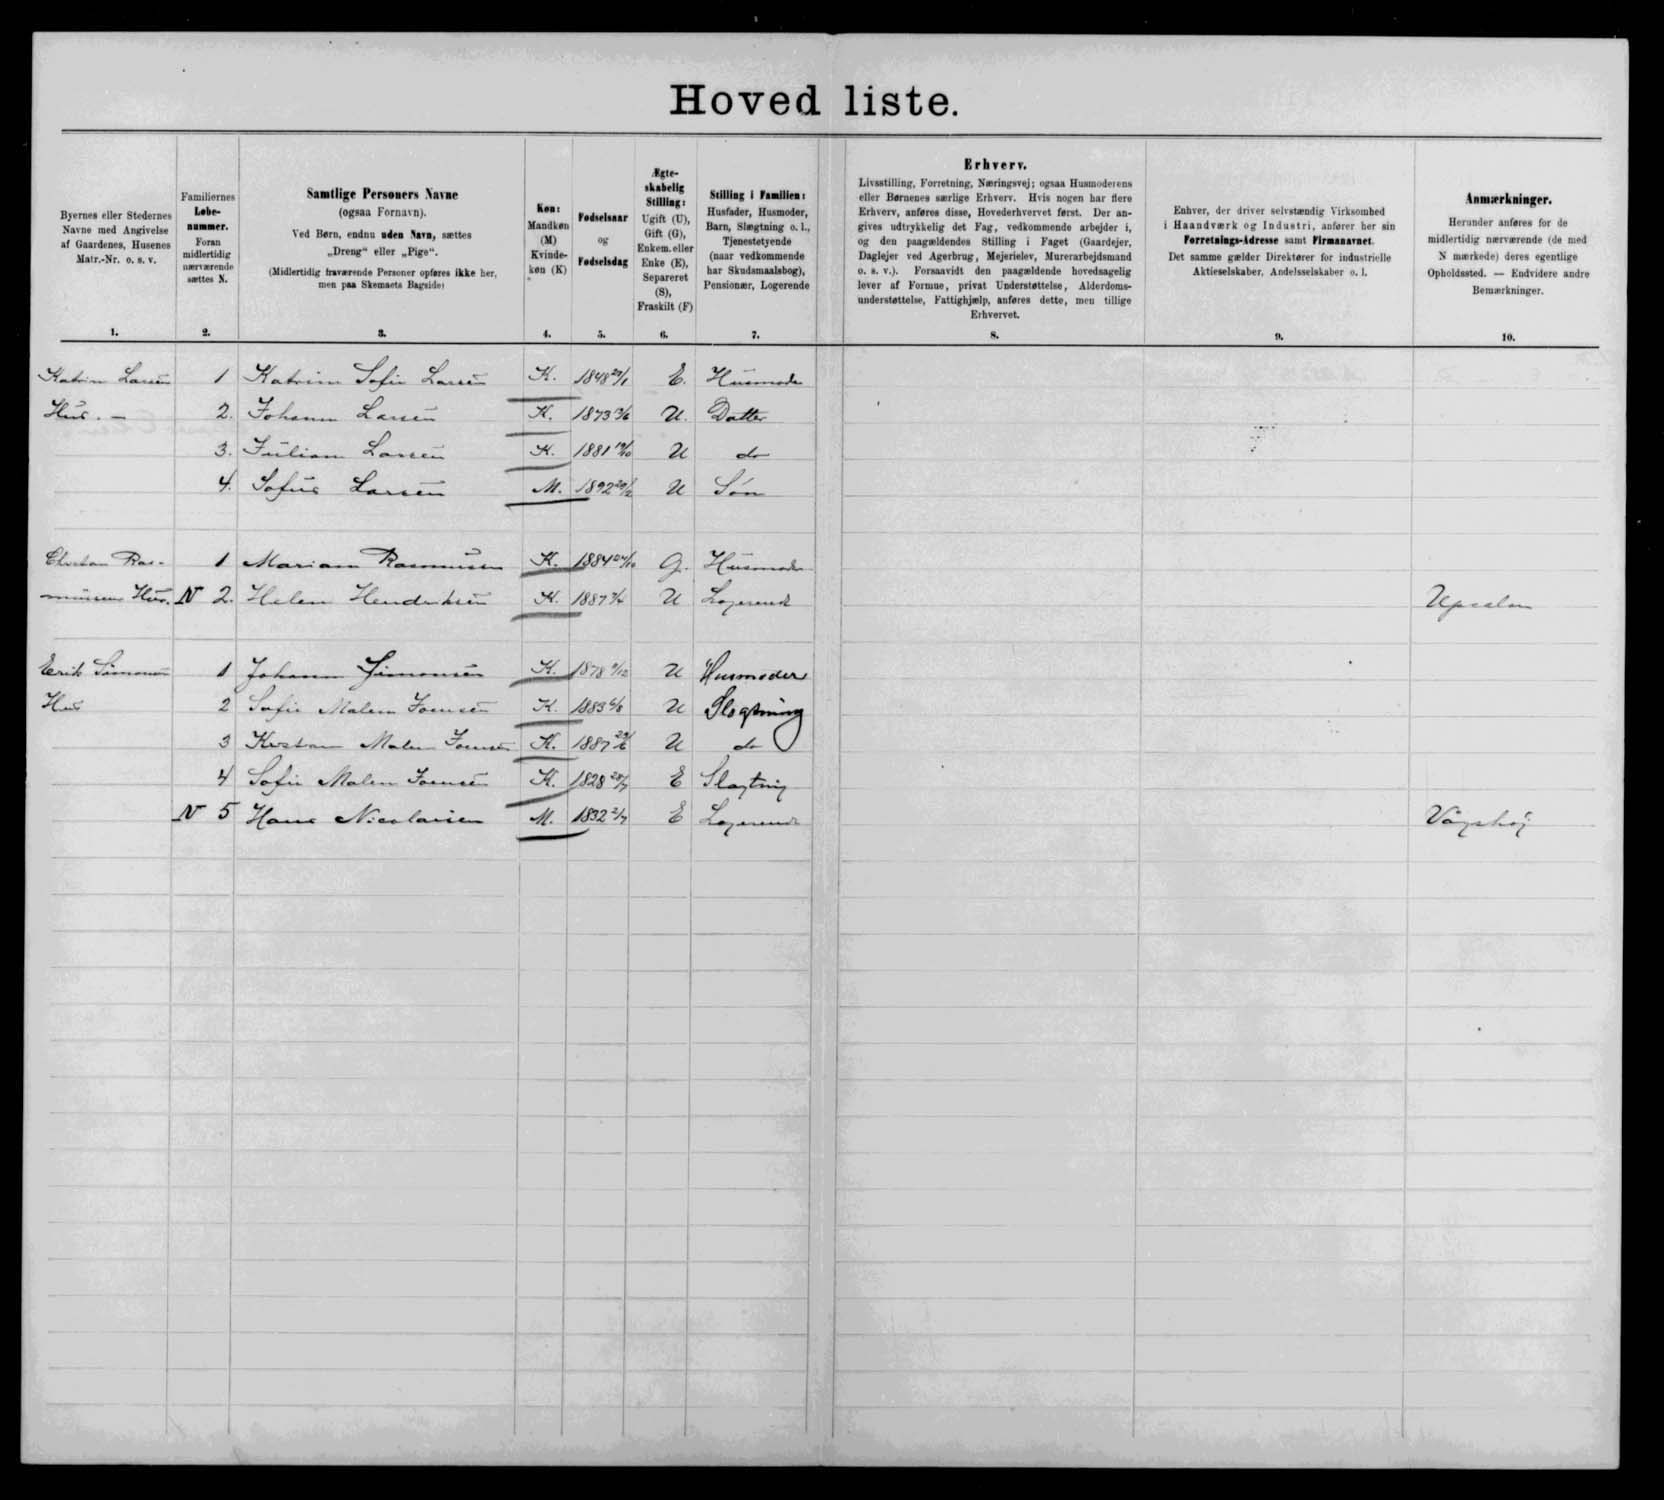 Hoved liste.
Byernes eller Stedernes
Navne med Angivelse
af Gaardenes, Husenes
Matr.-Nr. o. s. v.
1.
Familiernes
Løbe-
nummer.
Foran
midlertidig
nærværende
sættes N.
2.
Samtlige Personers Navne
(ogsaa Fornavn).
Ved Børn, endnu uden Navn, sættes
„Dreng“ eller „Pige“.
(Midlertidig fraværende Personer opføres ikke her,
men paa Skemaets Bagside)
3.
Køn:
Mandkøn
(M)
Kvinde-
køn (K)
4.
Fødselsaar
og
Fødselsdag
5.
Ægte-
skabelig
Stilling:
Ugift (U),
Gift (G),
Enkem. eller
Enke (E),
Separeret
(S),
Fraskilt (F)
6.
Stilling i Familien:
Husfader, Husmoder,
Barn, Slægtning o. l.,
Tjenestetyende
(naar vedkommende
har Skudsmaalsbog),
Pensionær, Logerende
7.
Erhverv.
Livsstilling, Forretning, Næringsvej; ogsaa Husmoderens
eller Børnenes særlige Erhverv. Hvis nogen har flere
Erhverv, anføres disse, Hovederhvervet først. Der an-
gives udtrykkelig det Fag, vedkommende arbejder i,
og den paagældendes Stilling i Faget (Gaardejer,
Daglejer ved Agerbrug, Mejerielev, Murerarbejdsmand
o. s. v.). Forsaavidt den paagældende hovedsagelig
lever af Formue, privat Understøttelse, Alderdoms-
understøttelse, Fattighjælp, anføres dette, men tillige
Erhvervet.
8.
Enhver, der driver selvstændig Virksomhed
i Haandværk og Industri, anfører her sin
Forretnings-Adresse samt Firmanavnet.
Det samme gælder Direktører for industrielle
Aktieselskaber, Andelsselskaber o. l.
9.
Anmærkninger.
Herunder anføres for de
midlertidig nærværende (de med
N mærkede) deres egentlige
Opholdssted. — Endvidere andre
Bemærkninger.
10.
Katrine Larsen 1 Katrine Sofie Larsen K. 1848 E. Husmoder
Hus. — 2. Johanne Larsen K. 1873 U. Datter
3. Juliane Larsen K. 1881 U do
4. Sofus Larsen M. 1892 U Søn
Ras- 1 Mariane Rasmussen K. 1884 G. Husmoder
mussens Hus. N 2. Helene Hendriksen K. 1887 U Logerende
Erik Simonsen 1 Johanne Simonsen K. 1878 U Husmoder
Hus 2 Sofie Malene Joensen K. 1883 U Slægtning
3 Malene Joensen K. 1887 U do
4 Sofie Malene Joensen K. 1828 E Slægtning
N 5 Hans Nicolaisen M. 1832 E Logerende